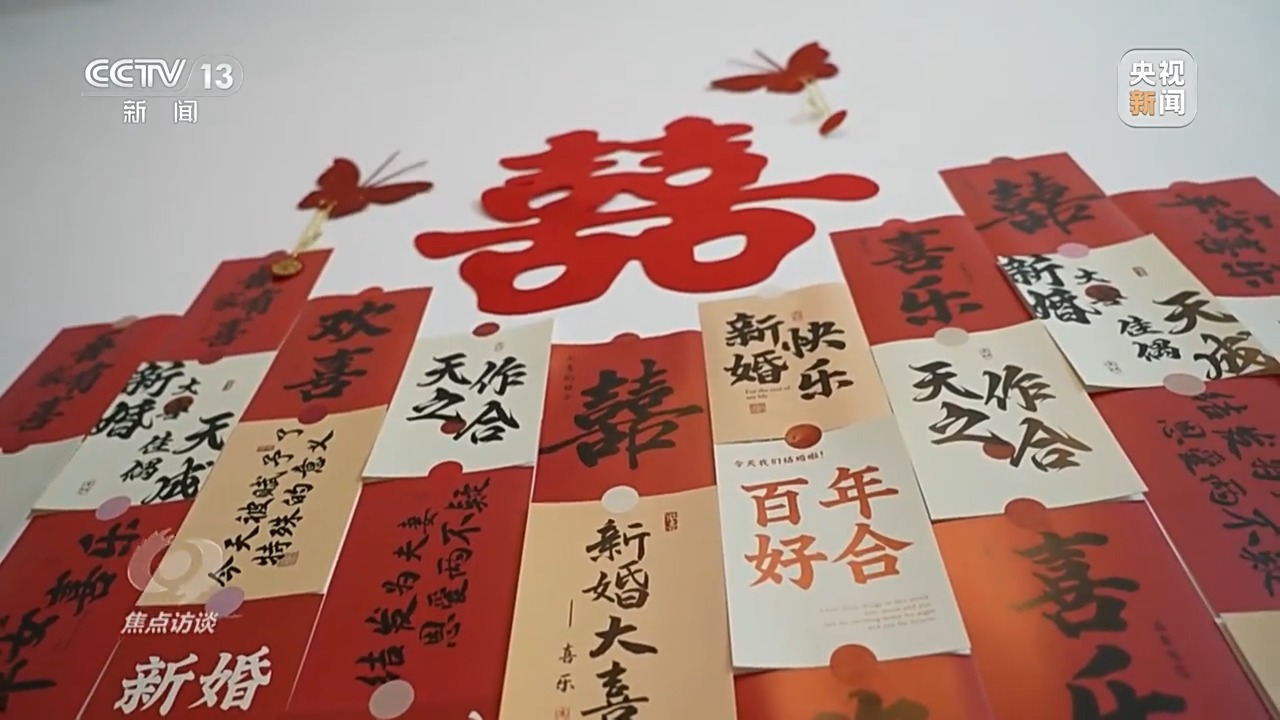 CCTV 13
新闻
央视
新闻
囍
囍
欢喜
天作
之合
囍
新婚快乐
喜乐
新婚
大喜
佳偶
天成
天作
之合
新婚
大喜
佳偶
天成
今天被赋予了
特殊的意义
结发为夫妻
恩爱两不疑
新婚大喜
喜乐
今天我们结婚啦!
百年
好合
喜乐
平安喜乐
焦点访谈
新婚